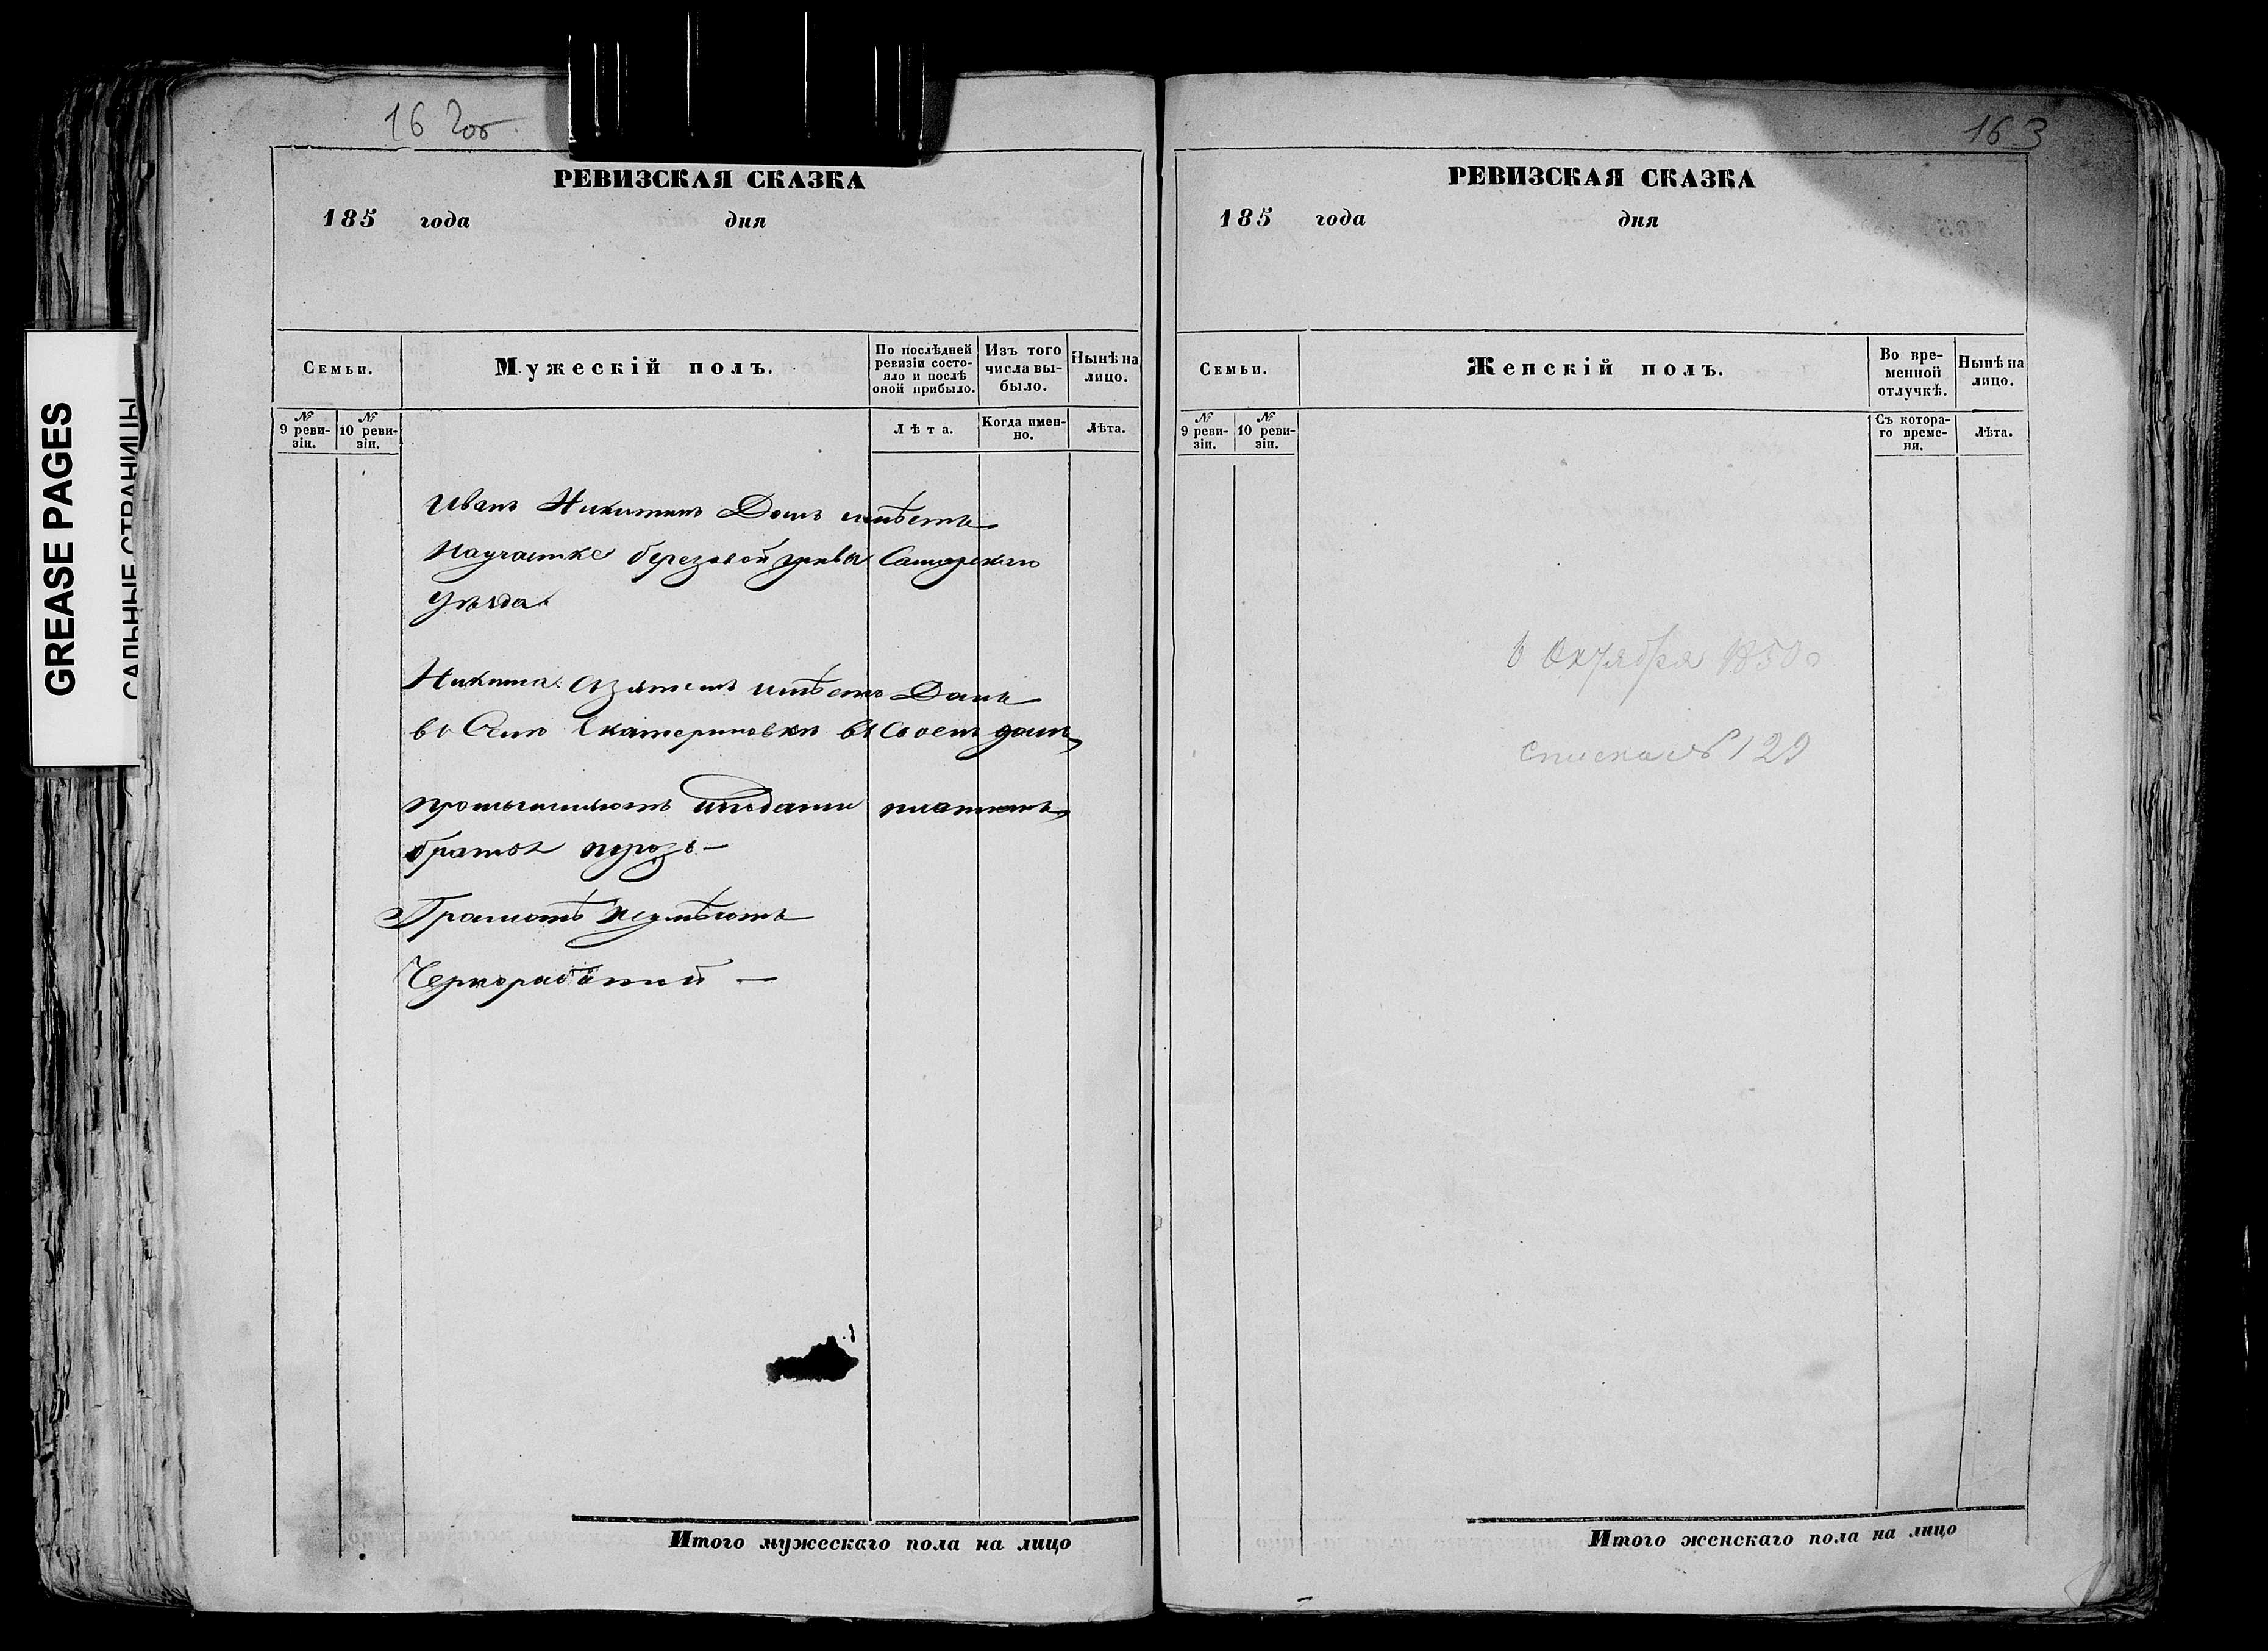 GREASE PAGES
САЛЬНЫЕ СТРАНИЦЫ
162об.
РЕВИЗСКАЯ СКАЗКА
185 года дня
Семьи.
Мужескій полъ.
По послѣдней ревизіи состояло и послѣ оной прибыло.
Изъ того числа выбыло.
Нынѣ на лицо.
№ 9 ревизіи.
№ 10 ревизіи.
Лѣта.
Когда именно.
Лѣта.
Иванъ Никитинъ Домъ имѣетъ
Научастке березовой гривы Самарскаго
Уѣзда
Никита имѣетъ Домъ
въ Селѣ Екатериновки въ Своемъ домѣ
промышляютъ платитъ
братъ
Грамотѣ неумѣютъ
Чернорабочий —
Итого мужескаго пола на лицо
163
РЕВИЗСКАЯ СКАЗКА
185 года дня
Семьи.
Женскій полъ.
Во временной отлучкѣ.
Нынѣ на лицо.
№ 9 ревизіи.
№ 10 ревизіи.
Съ котораго времени.
Лѣта.
6 Октября 1850
списка № 129
Итого женскаго пола на лицо